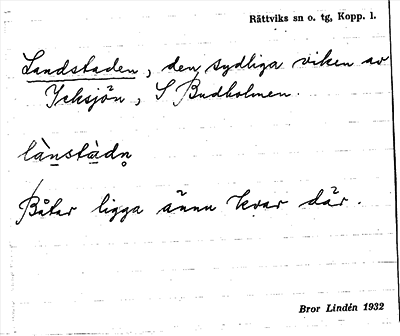 Rättviks sn o. tg, Kopp. l.
Landstaden, den sydliga viken av
Icksjön, S Budholmen.
lànstàdn̥
Båtar ligga ännu kvar där.
Bror Lindén 1932